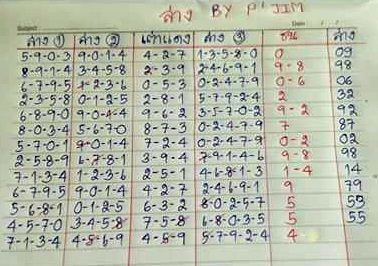 ล่าง BY P'JIM
Subject Date / /
ล่าง ① ล่าง ② ล่าง ③ ล่าง
5-9-0-3 9-0-1-4 4-2-7 1-3-5-8-0 0 09
8-9-1-4 3-4-5-8 2-3-9 2-4-6-9-1 9-8 98
6-7-9-5 1-2-3-6 0-5-3 0-2-4-7-9 0-6 06
2-3-5-8 0-1-2-5 2-8-1 5-7-9-2-4 2 32
6-8-9-0 9-0-4 9-6-2 3-5-7-0-2 9-2 92
8-0-3-4 5-6-7-0 8-7-3 0-2-4-7-9 7 87
5-7-0-1 9-0-1-4 7-2-4 0-2-4-7-9 0-2 02
2-5-8-9 6-7-8-1 3-9-4 7-9-1-4-6 9-8 98
7-1-3-4 1-2-3-6 2-5-1 4-6-8-1-3 1-4 14
6-7-9-5 9-0-1-4 4-2-7 2-4-6-9-1 9 79
5-6-8-1 0-1-2-5 6-3-2 8-0-2-5-7 5 59
4-5-7-0 3-4-5-8 7-5-8 6-8-0-3-5 5 55
7-1-3-4 4-5-6-9 4-6-9 5-7-9-2-4 4